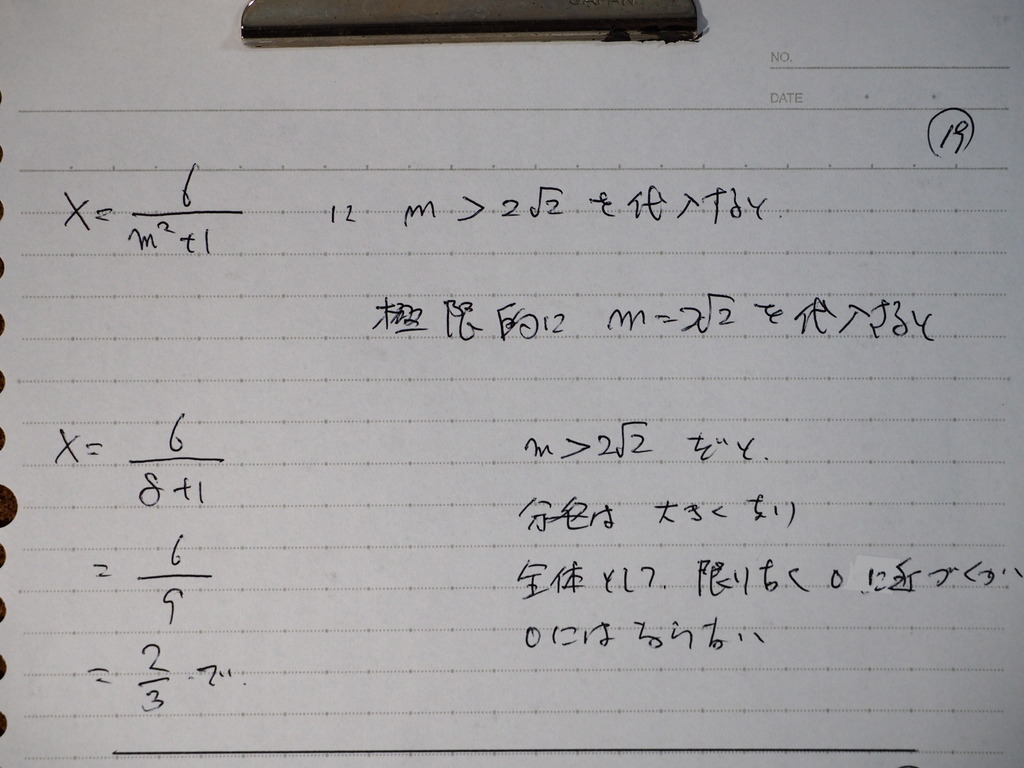 NO.
DATE
19
X = 6/(m²+1) に m > 2√2 を代入すると
極限的に m = 2√2 を代入すると
X = 6/(8+1)
= 6/9
= 2/3 で
m > 2√2 だと
分母は 大きくなり
全体として 限りなく 0に近づくが
0にはならない